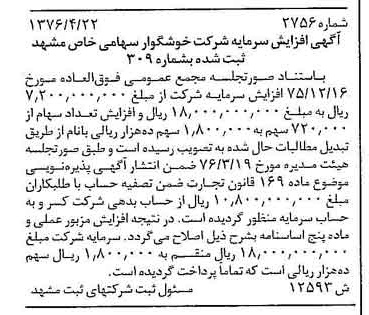 شماره ۲۷۵۶ ۱۳۷۶/۴/۲۲
آگهی افزایش سرمایه شرکت خوشگوار سهامی خاص مشهد
ثبت شده بشماره ۳۰۹
باستناد صورتجلسه مجمع عمومی فوق‌العاده مورخ
۷۵/۱۲/۱۶ افزایش سرمایه شرکت از مبلغ ۷,۲۰۰,۰۰۰,۰۰۰
ریال به مبلغ ۱۸,۰۰۰,۰۰۰,۰۰۰ ریال و افزایش تعداد سهام از
۷۲۰,۰۰۰ سهم به ۱,۸۰۰,۰۰۰ سهم ده‌هزار ریالی بانام از طریق
تبدیل مطالبات حال شده به تصویب رسیده است و طبق صورتجلسه
هیئت مدیره مورخ ۷۶/۳/۱۹ ضمن انتشار آگهی پذیره‌نویسی
موضوع ماده ۱۶۹ قانون تجارت ضمن تصفیه حساب با طلبکاران
مبلغ ۱۰,۸۰۰,۰۰۰,۰۰۰ ریال از حساب بدهی شرکت کسر و به
حساب سرمایه منظور گردیده است. در نتیجه افزایش مزبور عملی و
ماده پنج اساسنامه بشرح ذیل اصلاح می‌گردد. سرمایه شرکت مبلغ
۱۸,۰۰۰,۰۰۰,۰۰۰ ریال منقسم به ۱,۸۰۰,۰۰۰ ریال سهم
ده‌هزار ریالی است که تماماً پرداخت گردیده است.
ش ۱۲۵۹۳ مسئول ثبت شرکتهای ثبت مشهد